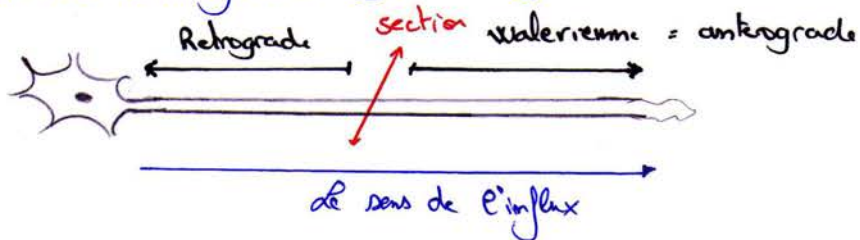 Retrograde section walerienne = anterograde
Le sens de l'influx